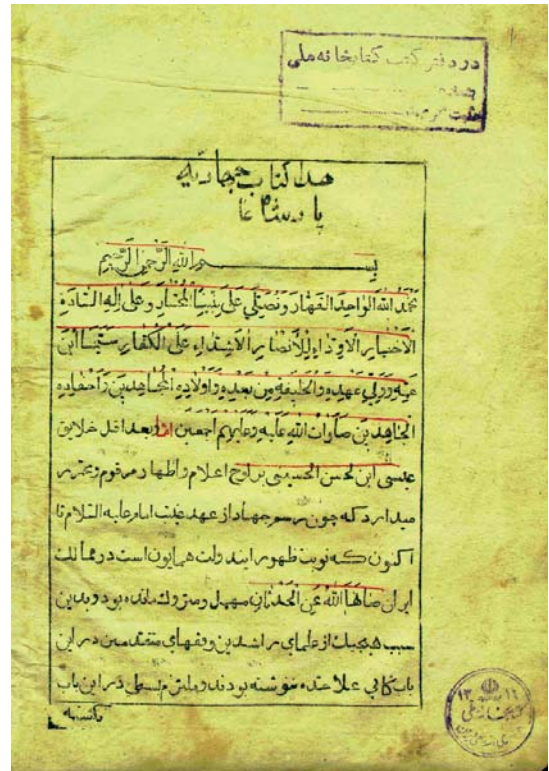 در دفتر کتب کتابخانه ملی
هذا کتاب جهادیه
بسم الله الرحمن الرحیم
نحمد الله الواحد القهار و نصلی علی نبینا المختار و علی اله السادة
الاخیار الاوداء للأنصار الاشداء علی الکفار سیما ابن
عمه و ولی عهده و الخلیفة من بعده و اولاده المجاهدین و احفاده
الجاهدین صلوات الله علیه و علیهم اجمعین اما بعد اقل خلایق
عیسی ابن الحسن الحسینی بر لوح اعلام و اظهار مرقوم و محرر
میدارد که چون رسم جهاد از عهد غیبت امام علیه السلام تا
اکنون که نوبت ظهور ایندولت همایون است در ممالک
ایران صانها الله عن الحدثان مهمل و متروک مانده بود و بدین
سبب هیچیک از علمای راشدین و فقهای متقدمین در این
باب کتابی علاحده ننوشته بودند و ملتزم بسطی در این باب